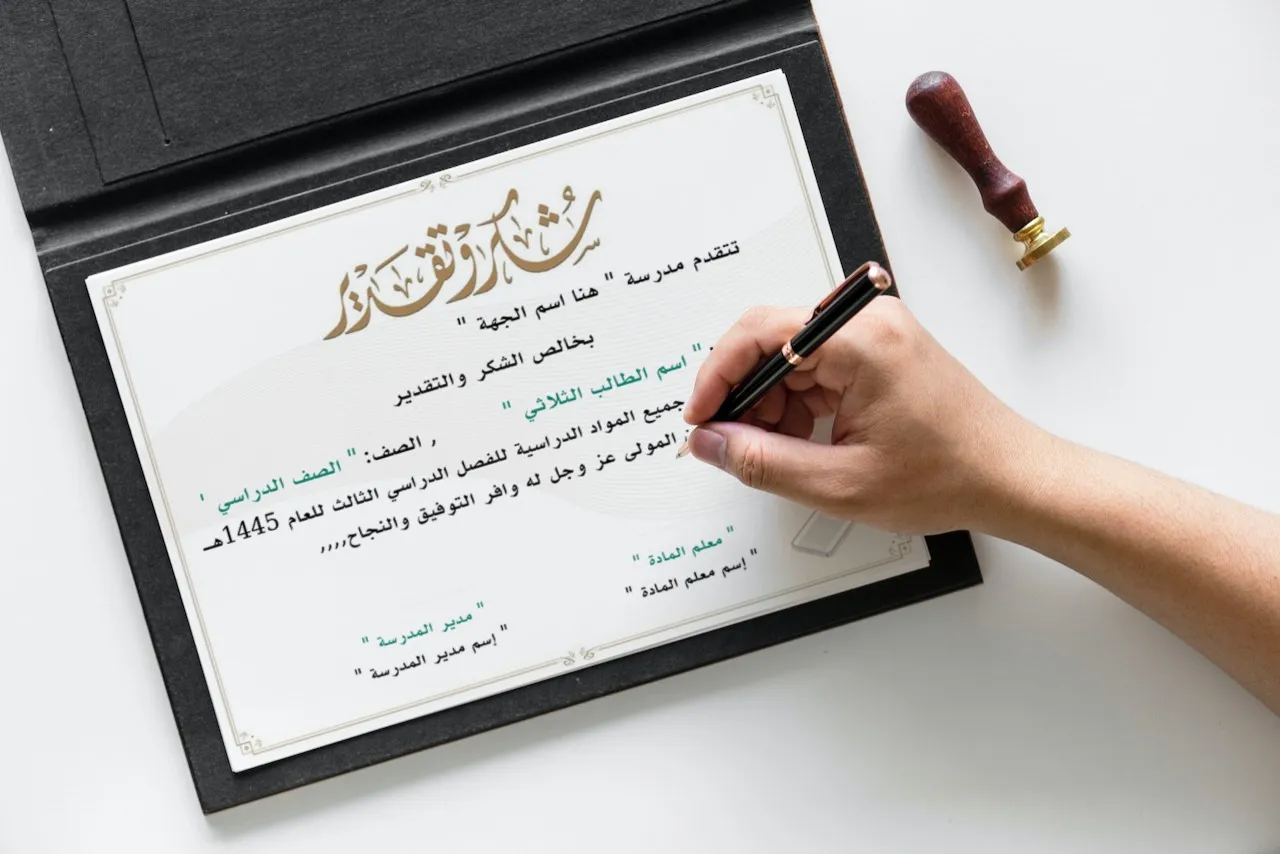 شكر وتقدير
تتقدم مدرسة " هنا اسم الجهة "
بخالص الشكر والتقدير
: " اسم الطالب الثلاثي " , الصف: " الصف الدراسي "
جميع المواد الدراسية للفصل الدراسي الثالث للعام 1445هـ
المولى عز وجل له وافر التوفيق والنجاح,,,,
" معلم المادة "
" إسم معلم المادة "
" مدير المدرسة "
" إسم مدير المدرسة "